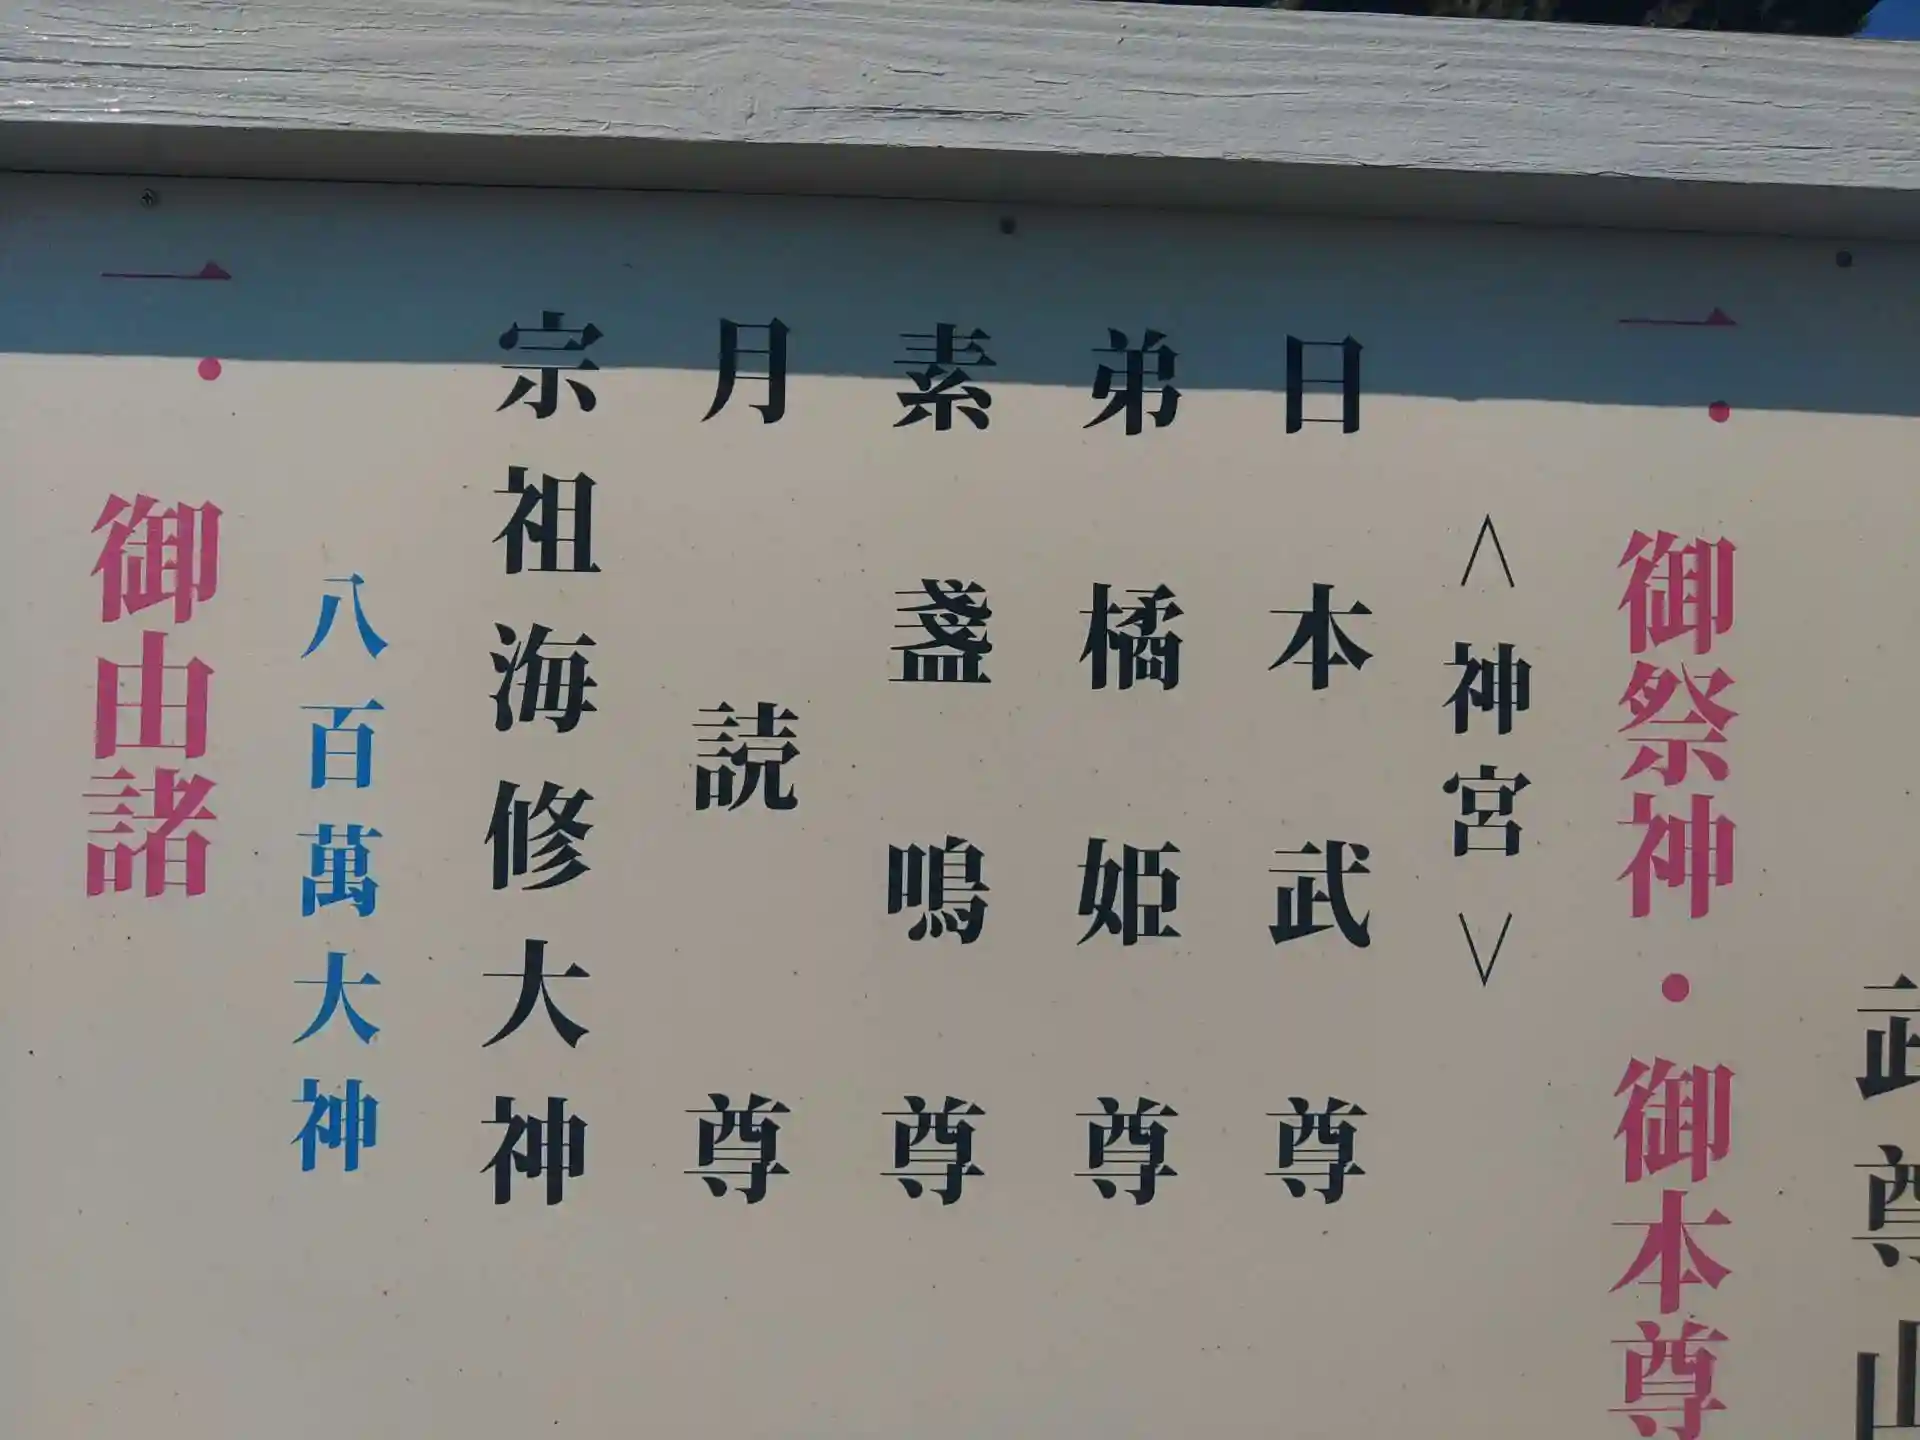 武尊山
一・御祭神・御本尊
<神宮>
日本武尊
弟橘姫尊
素盞鳴尊
月読尊
宗祖海修大神
八百萬大神
一・御由諸